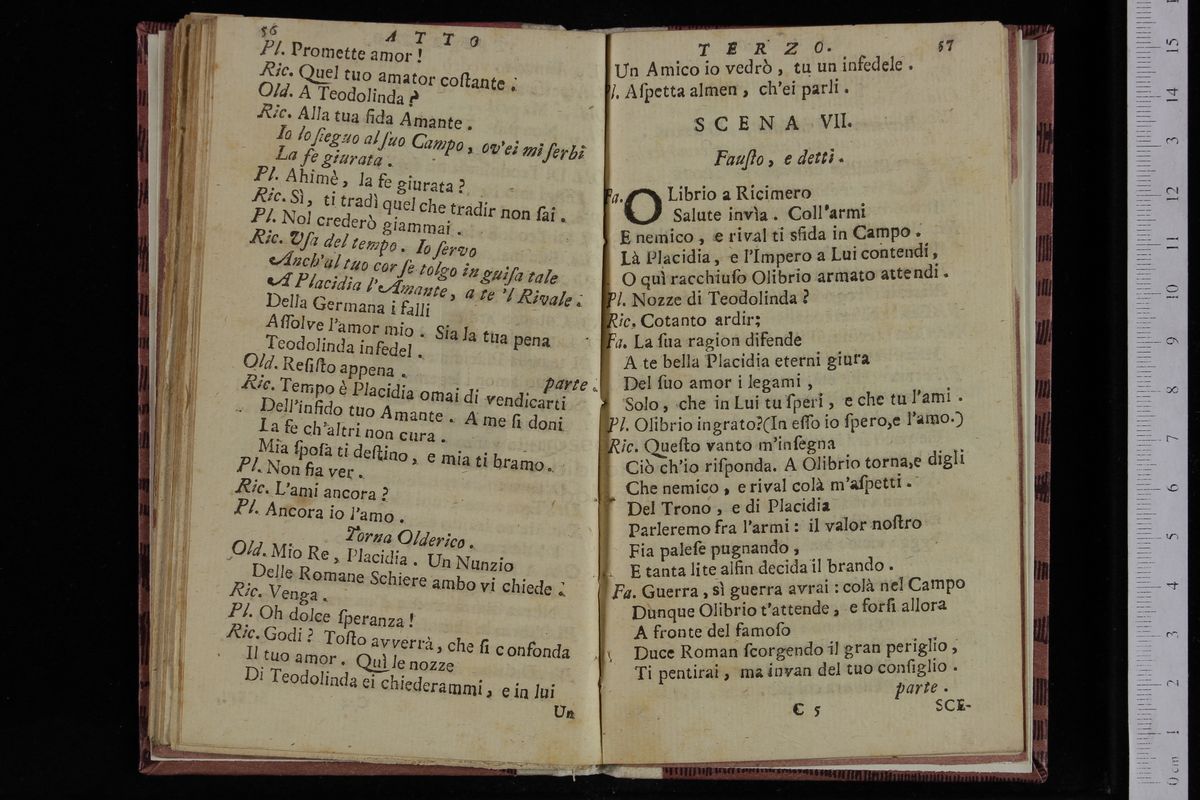 56
ATTO
Pl. Promette amor !
Ric. Quel tuo amator coſtante .
Old. A Teodolinda ?
Ric. Alla tua fida Amante .
Io lo ſieguo al ſuo Campo, ov'ei mi ſerbi
La fe giurata .
Pl. Ahimè, la fe giurata ?
Ric. Sì, ti tradì quel che tradir non ſai .
Pl. Nol crederò giammai .
Ric. Vſa del tempo. Io ſervo
Anch'al tuo cor ſe tolgo in guiſa tale
A Placidia l'Amante, a te 'l Rivale .
Della Germana i falli
Aſſolve l'amor mio . Sia la tua pena
Teodolinda infedel .
Old. Reſiſto appena .
parte .
Ric. Tempo è Placidia omai di vendicarti
Dell'infido tuo Amante . A me ſi doni
La fe ch'altri non cura .
Mia ſpoſa ti deſtino, e mia ti bramo.
Pl. Non fia ver .
Ric. L'ami ancora ?
Pl. Ancora io l'amo .
Torna Olderico .
Old. Mio Re, Placidia . Un Nunzio
Delle Romane Schiere ambo vi chiede .
Ric. Venga .
Pl. Oh dolce ſperanza !
Ric. Godi ? Toſto avverrà, che ſi confonda
Il tuo amor . Quì le nozze
Di Teodolinda ei chiederammi, e in lui
Un
TERZO.
57
Un Amico io vedrò, tu un infedele .
Pl. Aſpetta almen, ch'ei parli .
SCENA VII.
Fauſto, e detti .
Fa. OLibrio a Ricimero
Salute invìa . Coll'armi
E nemico, e rival ti sfida in Campo .
Là Placidia, e l'Impero a Lui contendi,
O quì racchiuſo Olibrio armato attendi .
Pl. Nozze di Teodolinda ?
Ric. Cotanto ardir;
Fa. La ſua ragion difende
A te bella Placidia eterni giura
Del ſuo amor i legami,
Solo, che in Lui tu ſperi, e che tu l'ami .
Pl. Olibrio ingrato?(In eſſo io ſpero,e l'amo.)
Ric. Queſto vanto m'inſegna
Ciò ch'io riſponda. A Olibrio torna,e digli
Che nemico, e rival colà m'aſpetti .
Del Trono, e di Placidia
Parleremo fra l'armi : il valor noſtro
Fia paleſe pugnando,
E tanta lite alfin decida il brando .
Fa. Guerra, sì guerra avrai : colà nel Campo
Dunque Olibrio t'attende, e forſi allora
A fronte del famoſo
Duce Roman ſcorgendo il gran periglio,
Ti pentirai, ma invan del tuo conſiglio .
parte .
C 5
SCE-
0 cm 1 2 3 4 5 6 7 8 9 10 11 12 3 14 15